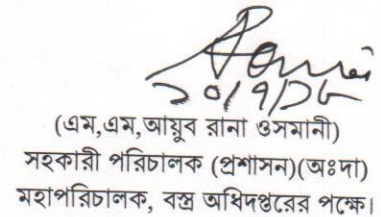 ২০/৭/১৬
(এম,এম,আয়ুব রানা ওসমানী)
সহকারী পরিচালক (প্রশাসন)(অঃদা)
মহাপরিচালক, বস্ত্র অধিদপ্তরের পক্ষে।